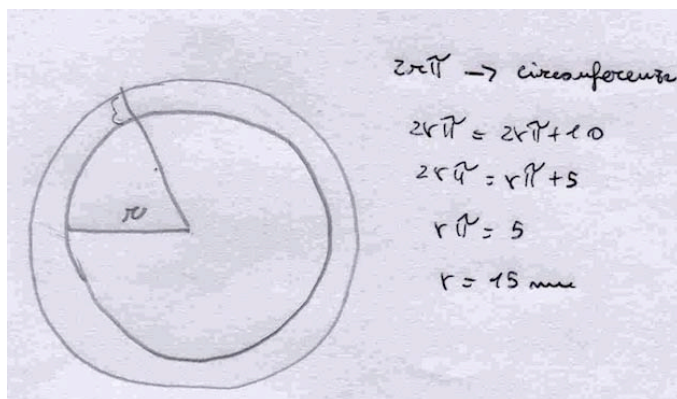 2rπ → circonferenza
2rπ = 2rπ+10
2rπ = rπ+5
rπ = 5
r = 15 mm
r